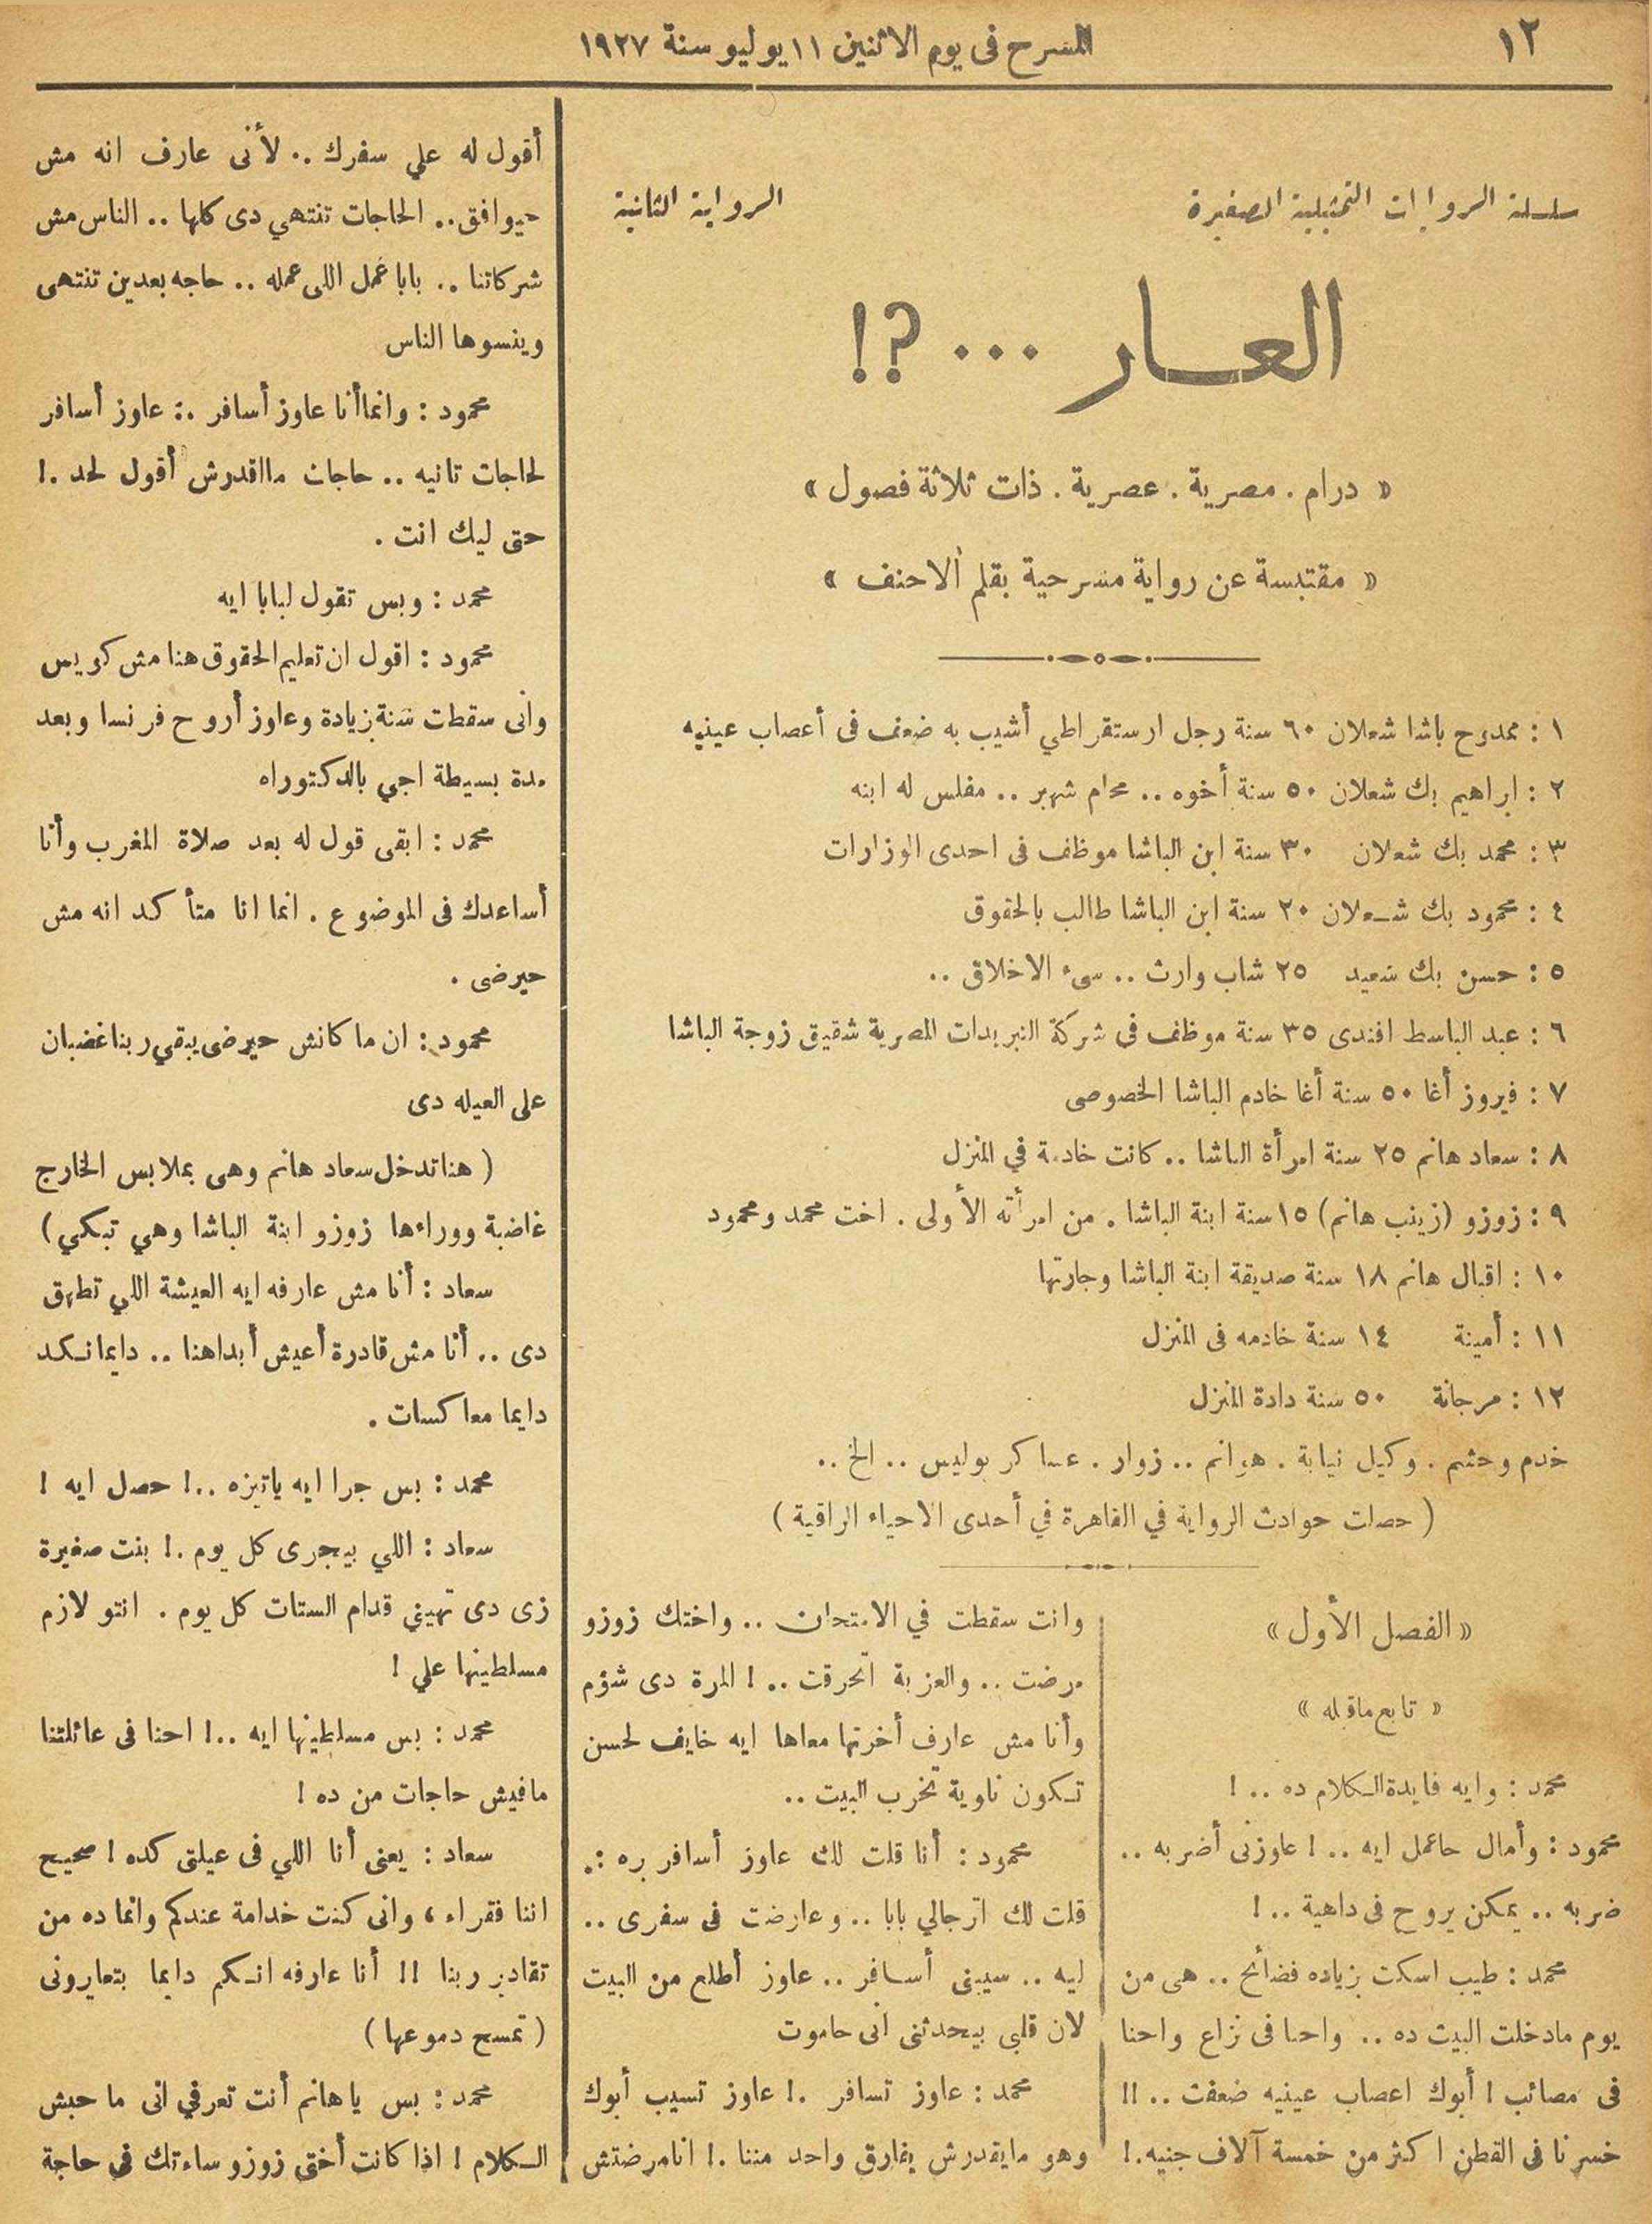 ١٢
المسرح فى يوم الاثنين ١١ يوليو سنة ١٩٢٧
سلسلة الروايات التمثيلية الصغيرة
الرواية الثانية
العـــار ... ؟!
« درام . مصرية . عصرية . ذات ثلاثة فصول »
« مقتبسة عن رواية مسرحية بقلم الاحنف »
١ : ممدوح باشا شعلان ٦٠ سنة رجل ارستقراطي أشيب به ضعف فى أعصاب عينيه
٢ : ابراهيم بك شعلان ٥٠ سنة أخوه .. محام شهير .. مفلس له ابنه
٣ : محمد بك شعلان ٣٠ سنة ابن الباشا موظف فى احدى الوزارات
٤ : محمود بك شـعلان ٢٠ سنة ابن الباشا طالب بالحقوق
٥ : حسن بك سعيد ٢٥ شاب وارث .. سىء الاخلاق ..
٦ : عبد الباسط افندى ٣٥ سنة موظف فى شركة التبريدات المصرية شقيق زوجة الباشا
٧ : فيروز أغا ٥٠ سنة أغا خادم الباشا الخصوصى
٨ : سعاد هانم ٢٥ سنة امرأة الباشا .. كانت خادمة في المنزل
٩ : زوزو (زينب هانم) ١٥ سنة ابنة الباشا . من امرأته الأولى . اخت محمد ومحمود
١٠ : اقبال هانم ١٨ سنة صديقة ابنة الباشا وجارتها
١١ : أمينة ١٤ سنة خادمه فى المنزل
١٢ : مرجانة ٥٠ سنة دادة المنزل
خدم وحشم . وكيل نيابة . هوانم .. زوار . عساكر بوليس .. الخ ..
( حصلت حوادث الرواية في القاهرة في أحدى الاحياء الراقية )
« الفصل الأول »
« تابع ماقبله »
محمد : وايه فايدة الـكلام ده .. !
محمود : وأمال حاعمل ايه .. ! عاوزنى أضربه ..
ضربه .. يمكن يروح فى داهية .. !
محمد : طيب اسكت بزياده فضائح .. هى من
يوم مادخلت البيت ده .. واحنا فى نزاع واحنا
فى مصائب ! أبوك اعصاب عينيه ضعفت .. !!
خسرنا فى القطن اكثر من خمسة آلاف جنيه .!
وانت سقطت في الامتحان .. واختك زوزو
مرضت .. والعزبة اتحرقت .. ! المرة دى شؤم
وأنا مش عارف أخرتها معاها ايه خايف لحسن
تـكون ناوية تخرب البيت ..
محمود : أنا قلت لك عاوز أسافر بره :.
قلت لك اترجالي بابا .. وعارضت فى سفرى ..
ليه .. سيبنى أسـافر .. عاوز أطلع من البيت
لان قلبى بيحدثنى انى حاموت
محمد : عاوز تسافر .! عاوز تسيب أبوك
وهو مايقدرش يفارق واحد مننا .! انامرضتش
أقول له علي سفرك .. لأنى عارف انه مش
حيوافق .. الحاجات تنتهي دى كلها .. الناس مش
شركاتنا .. بابا عمل اللى عمله .. حاجه بعدين تنتهى
وينسوها الناس
محمود : وانما أنا عاوز أسافر .: عاوز أسافر
لحاجات تانيه .. حاجات مااقدرش أقول لحد .!
حتى ليك انت .
محمد : وبس تقول لبابا ايه
محمود : اقول ان تعليم الحقوق هنا مش كويس
وانى سقطت سنة بزيادة وعاوز أروح فرنسا وبعد
مدة بسيطة اجي بالدكتوراه
محمد : ابقى قول له بعد صلاة المغرب وأنا
أساعدك فى الموضوع . انما انا متأكد انه مش
حيرضى .
محمود : ان ما كانش حيرضى يبقي ربنا غضبان
على العيله دى
( هنا تدخل سعاد هانم وهى بملابس الخارج
غاضبة ووراءها زوزو ابنة الباشا وهي تبكي )
سعاد : أنا مش عارفه ايه العيشة اللي تطهق
دى .. أنا مش قادرة أعيش أبدا هنا .. دايما نـكد
دايما معاكسات .
محمد : بس جرا ايه ياتيزه ..! حصل ايه !
سعاد : اللي بيجرى كل يوم .! بنت صغيرة
زى دى تهيني قدام الستات كل يوم . انتو لازم
مسلطينها علي !
محمد : بس مسلطينها ايه ..! احنا فى عائلتنا
مافيش حاجات من ده !
سعاد : يعنى أنا اللي فى عيلتى كده ! صحيح
اننا فقراء ، وانى كنت خدامة عندكم وانما ده من
تقادير ربنا !! أنا عارفه انـكم دايما بتعايرونى
( تمسح دموعها )
محمد : بس ياهانم أنت تعرفي انى ما حبش
الـكلام ! اذا كانت أختى زوزو ساءتك في حاجة